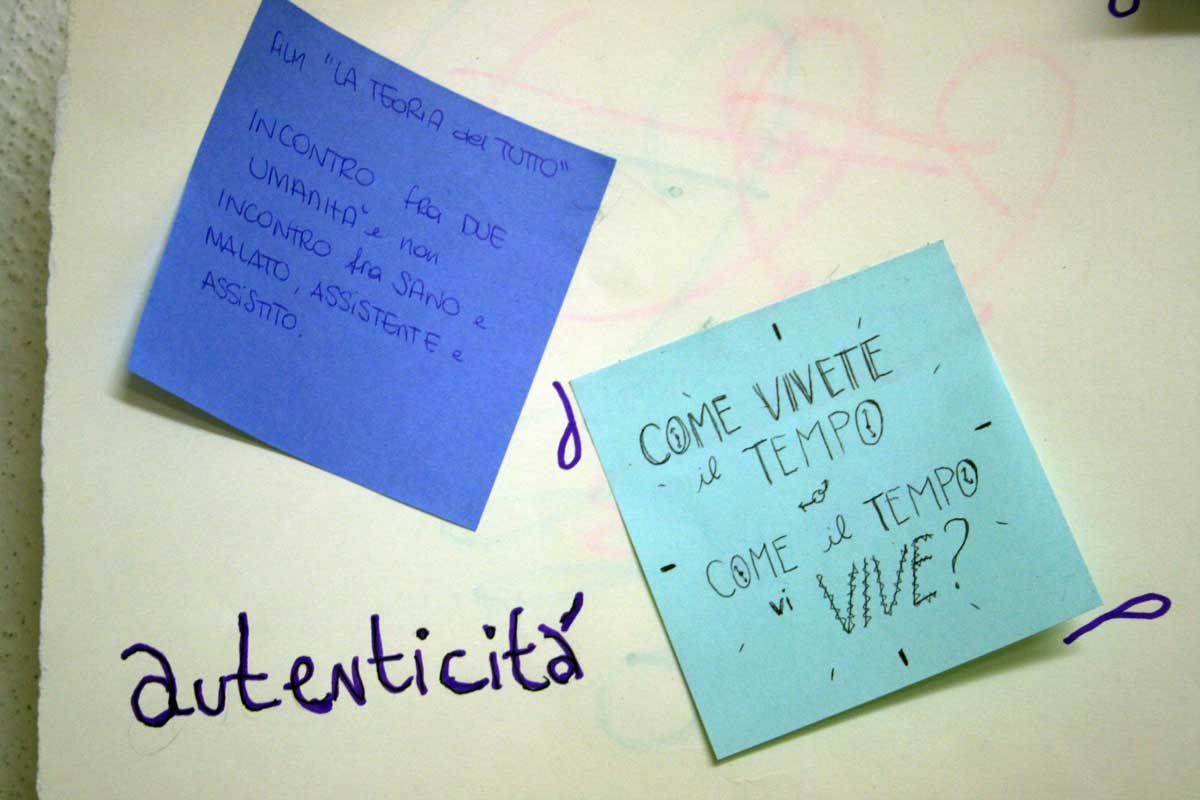 FILM "LA TEORIA del TUTTO"
INCONTRO fra DUE
UMANITA' e non
INCONTRO fra SANO e
MALATO, ASSISTENTE e
ASSISTITO.
COME VIVETE
il TEMPO
COME il TEMPO
vi VIVE?
autenticitá